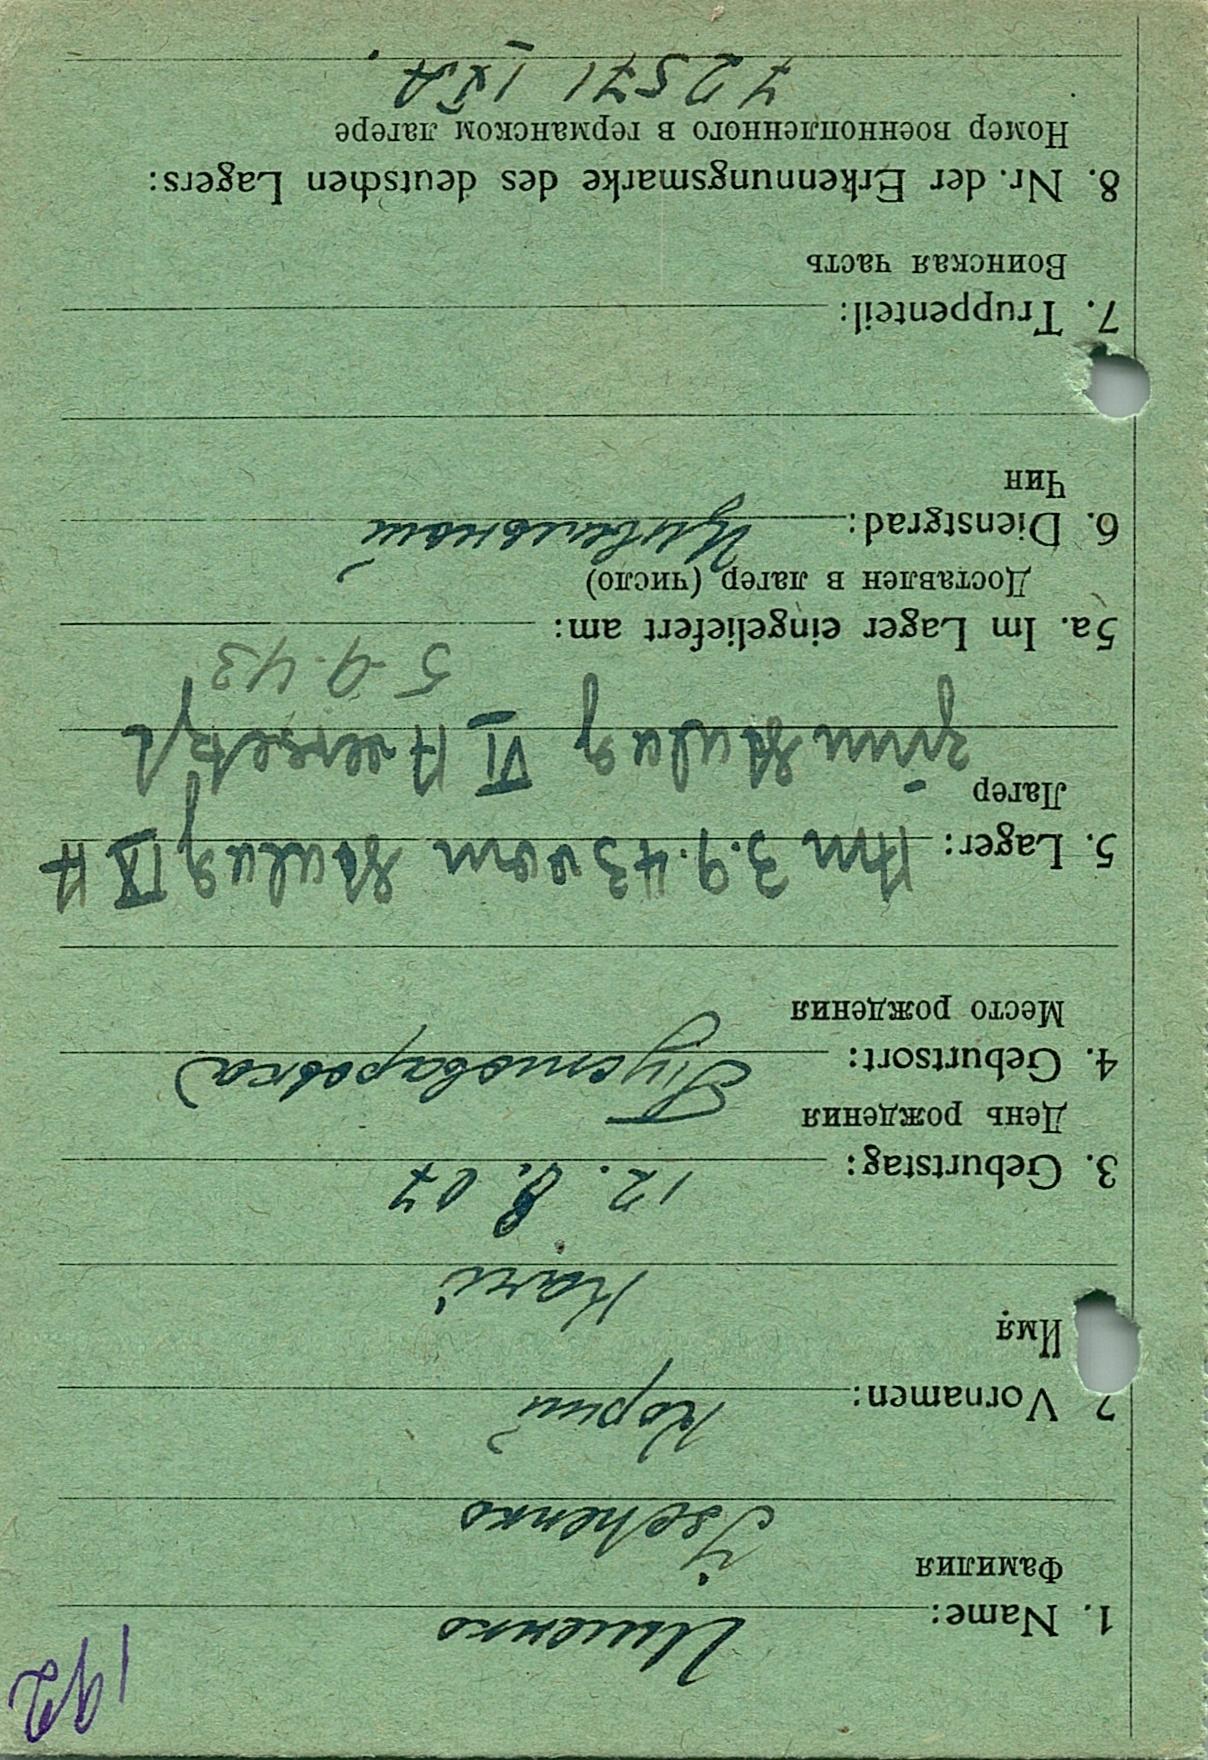 192
1. Name: Ищенко
Фамилия
Ischenko
2 Vornamen: Корий
Имя
Kari
3. Geburtstag: 12. 8. 07
День рождения
4. Geburtsort: Пустоваровка
Место рождения
5. Lager: Am 3.9.43 vom Stalag IX A
Лагер
zum Stalag VI A versetzt
5a. Im Lager eingeliefert am: 5-9-43
Доставлен в лагер (число)
6. Dienstgrad: Цивильный
Чин
7. Truppenteil:
Воинская часть
8. Nr. der Erkennungsmarke des deutschen Lagers:
Номер военнопленного в германском лагере
72571 IX A.